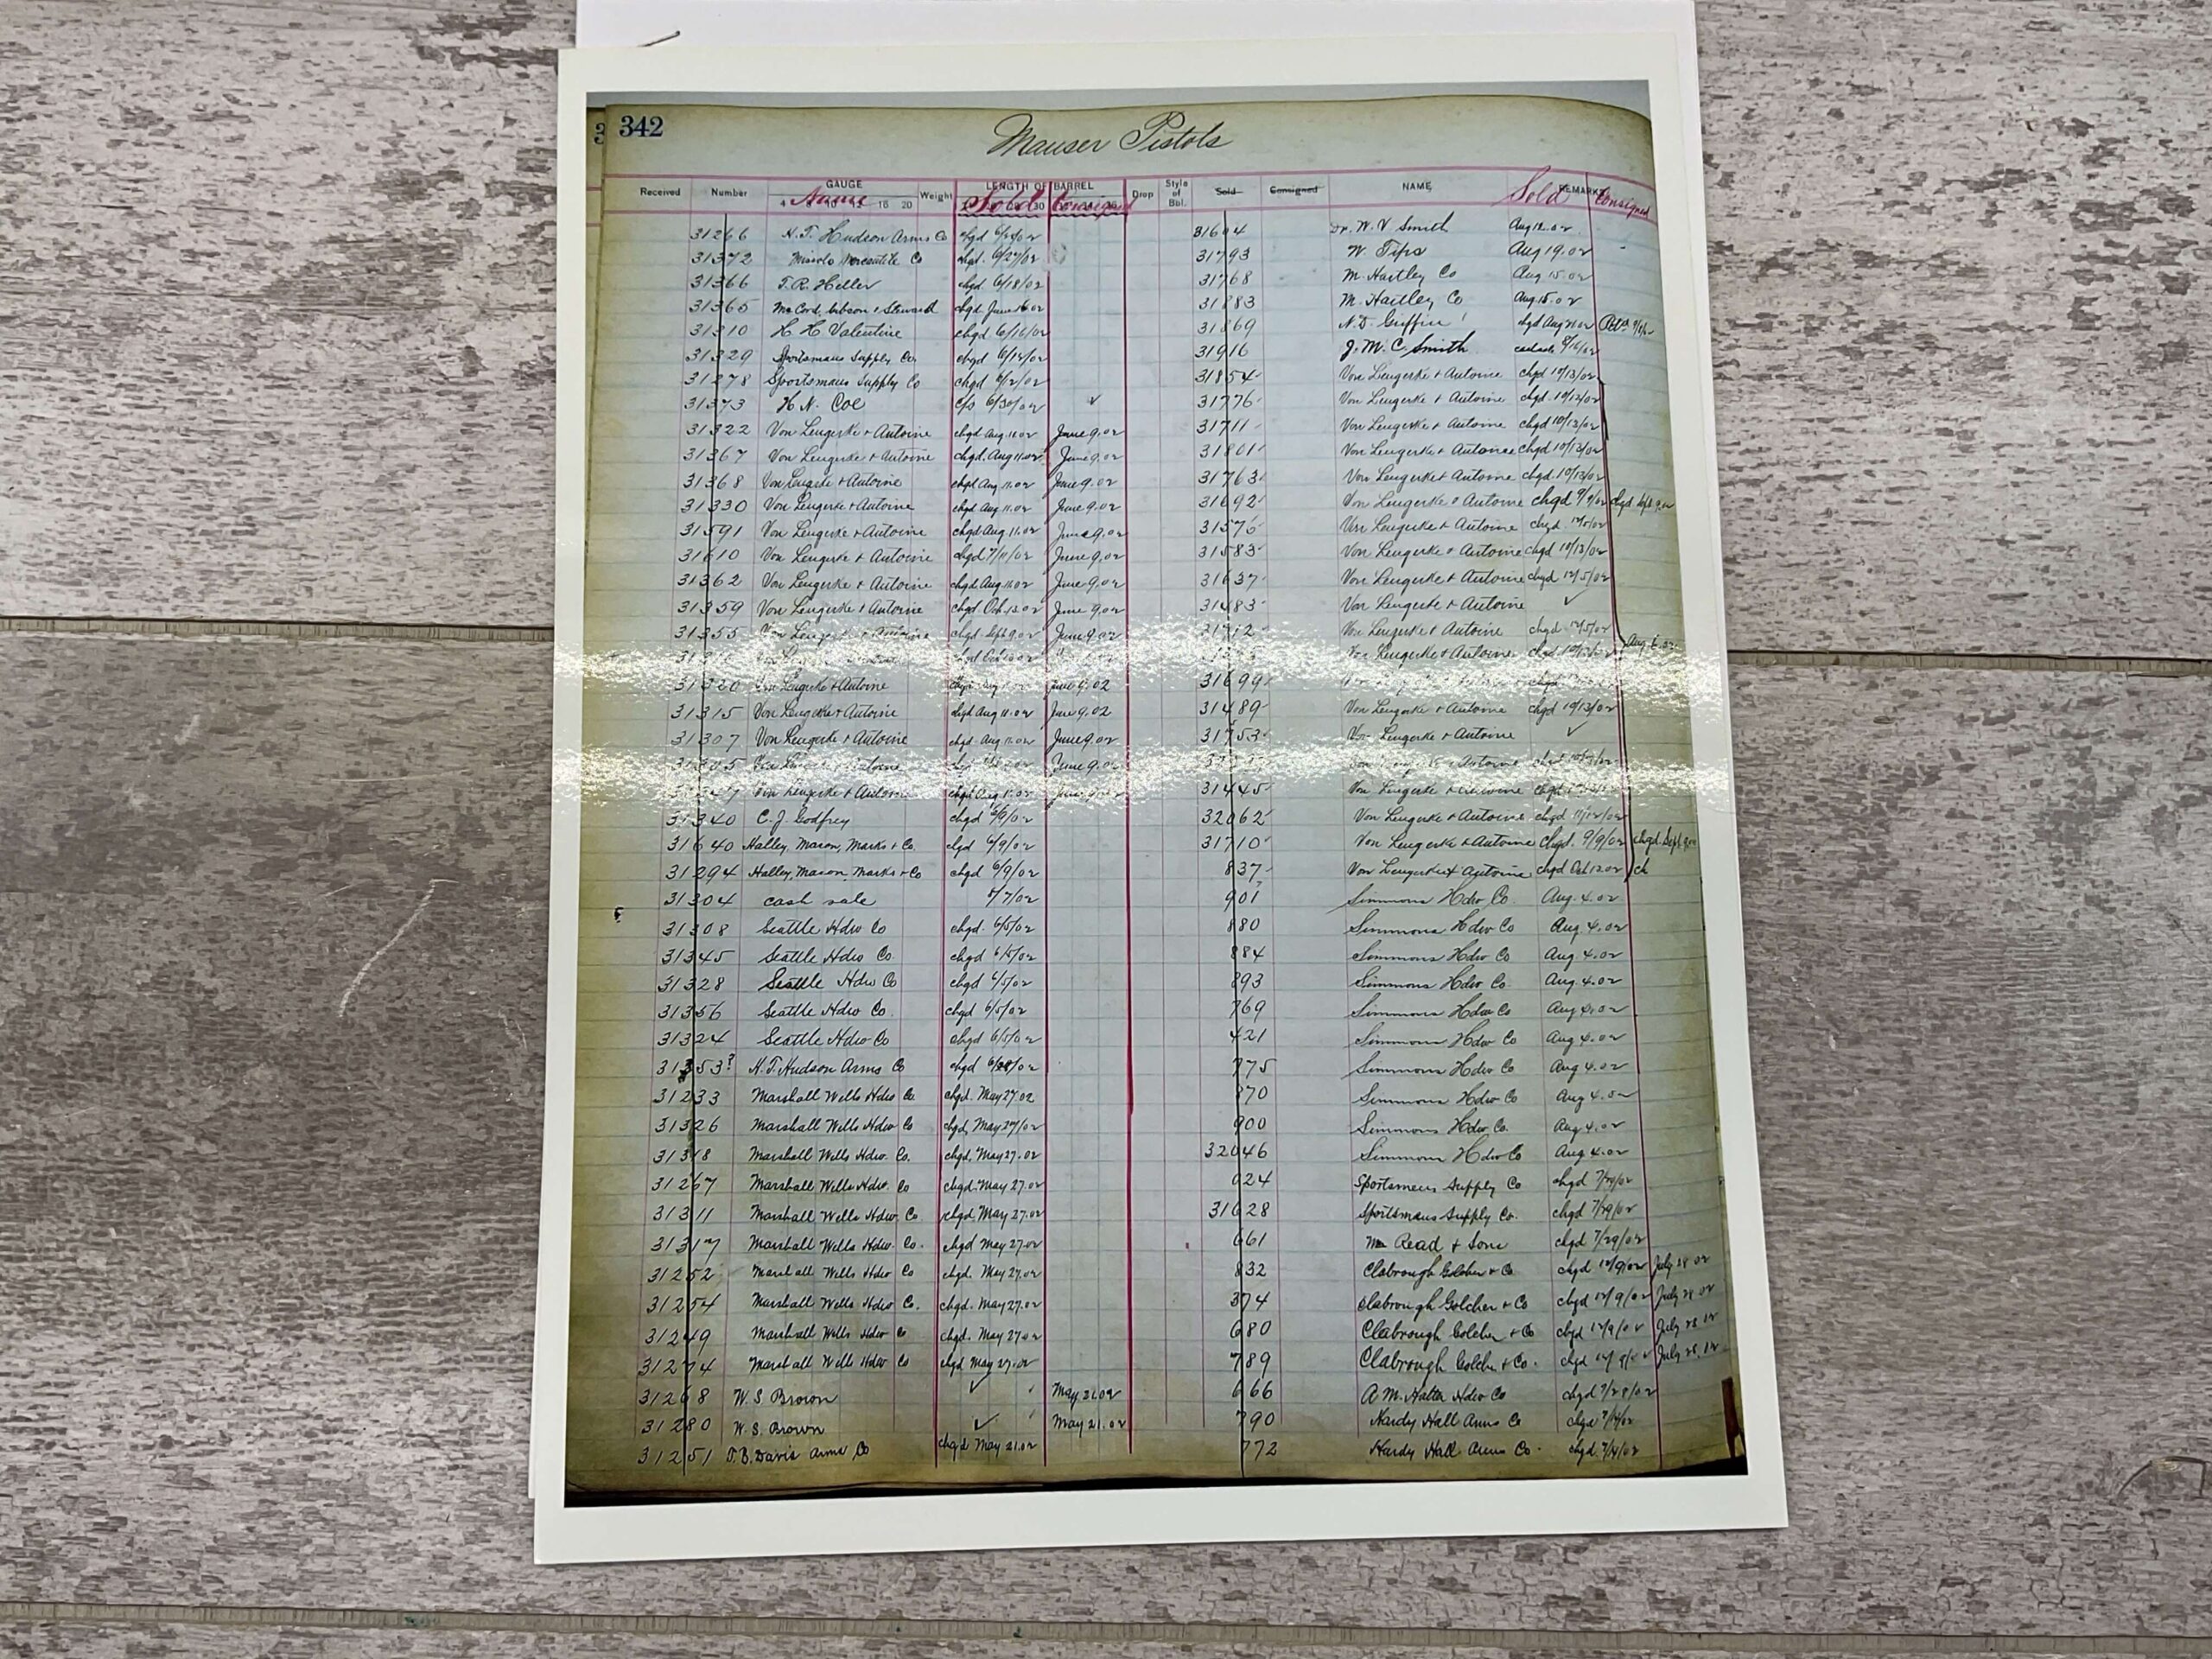 342
Mauser Pistols
Received Number GAUGE Weight LENGTH OF BARREL Drop Style of Bbl. Sold Consigned NAME REMARKS
Name 20 Sold 30 Consigned Sold Consigned
31266 H.T. Hudson Arms Co chgd 31604 Dr. W. V Smith Aug 12.02
31372 Mercantile Co chgd. 6/27/02 31793 W. Tips Aug 19.02
31366 T.R. Heller chgd 6/18/02 31768 M. Hartley Co Aug 15.02
31365 McCord, Gibson & Steward chgd. June 16 02 31883 M. Hartley Co Aug. 15.02
31310 H H Valentine chgd 6/16/02 31869 N.D. Griffin chgd Aug 02
31329 Sportsmans Supply Co. chgd 6/12/02 31916 J. M. C. Smith
31278 Sportsmans Supply Co chgd 6/12/02 31854 Von Lengerke & Antoine chgd 10/13/02
31373 H. N. Coe 6/30/02 ✓ 31776 Von Lengerke & Antoine chgd. 10/13/02
31322 Von Lengerke & Antoine chgd Aug. 11.02 June 9.02 31711 Von Lengerke & Antoine chgd 10/13/02
31367 Von Lengerke & Antoine chgd. Aug 11.02 June 9.02 31801 Von Lengerke & Antoine chgd 10/13/02
31368 Von Lengerke & Antoine chgd Aug. 11.02 June 9.02 31763 Von Lengerke & Antoine chgd. 10/13/02
31330 Von Lengerke & Antoine chgd Aug. 11.02 June 9.02 31692 Von Lengerke & Antoine chgd 9/9/02 chgd Sept 9.02
31591 Von Lengerke & Antoine chgd Aug. 11.02 June 9.02 31576 Von Lengerke & Antoine chgd 12/5/02
31610 Von Lengerke & Antoine chgd 7/11/02 June 9.02 31583 Von Lengerke & Antoine chgd 10/13/02
31362 Von Lengerke & Antoine chgd Aug. 11.02 June 9.02 31637 Von Lengerke & Antoine chgd 12/5/02
31359 Von Lengerke & Antoine chgd Oct. 13.02 June 9.02 31483 Von Lengerke & Antoine ✓
31355 Von Lengerke & Antoine chgd. Sept 9.02 June 9.02 31712 Von Lengerke & Antoine chgd 12/5/02 Aug. 6.02
Von Lengerke & Antoine chgd
31320 Von Lengerke & Antoine June 9.02 31699
31315 Von Lengerke & Antoine chgd Aug 11.02 June 9.02 31489 Von Lengerke & Antoine chgd 10/13/02
31307 Von Lengerke & Antoine chgd. Aug. 11.02 June 9.02 31753 Von Lengerke & Antoine ✓
Antoine June 9.02 Von Lengerke & Antoine
Von Lengerke & Antoine 31445 Von Lengerke & Antoine
31340 C. J. Godfrey chgd 6/9/02 32062 Von Lengerke & Antoine chgd 11/12/02
31640 Halley, Mason, Marks & Co. chgd 6/9/02 31710 Von Lengerke & Antoine chgd. 9/9/02 chgd. Sept 9.02
31294 Halley, Mason, Marks & Co chgd 6/9/02 837 Von Lengerke & Antoine chgd Oct 13.02 ch
31304 cash sale 6/7/02 901 Simmons Hdw Co. Aug. 4.02
31308 Seattle Hdw Co chgd. 6/5/02 880 Simmons Hdw Co Aug. 4.02
31345 Seattle Hdw Co. chgd 6/5/02 884 Simmons Hdw Co Aug. 4.02
31328 Seattle Hdw Co chgd 6/5/02 893 Simmons Hdw Co. Aug. 4.02
31356 Seattle Hdw Co. chgd 6/5/02 769 Simmons Hdw Co Aug 4.02
31324 Seattle Hdw Co chgd 6/5/02 421 Simmons Hdw Co Aug 4.02
31353? H. T. Hudson Arms Co chgd 775 Simmons Hdw Co Aug 4.02
31233 Marshall Wells Hdw Co. chgd. May 27.02 870 Simmons Hdw Co Aug 4.02
31326 Marshall Wells Hdw Co chgd. May 27/02 900 Simmons Hdw Co. Aug 4.02
31318 Marshall Wells Hdw. Co. chgd. May 27.02 32046 Simmons Hdw Co Aug 4.02
31267 Marshall Wells Hdw. Co chgd. May 27.02 624 Sportsmens Supply Co chgd 7/29/02
31311 Marshall Wells Hdw. Co chgd. May 27.02 31628 Sportsmans Supply Co. chgd 7/29/02
31317 Marshall Wells Hdw. Co. chgd May 27.02 661 Wm Read & Sons chgd 7/29/02
31252 Marshall Wells Hdw Co chgd. May 27.02 832 Clabrough Golcher & Co. chgd 12/9/02 July 28 02
31254 Marshall Wells Hdw Co. chgd. May 27.02 374 Clabrough Golcher & Co chgd 12/9/02 July 28 02
31249 Marshall Wells Hdw Co chgd. May 27.02 680 Clabrough Golcher & Co chgd 12/9/02 July 28 02
31274 Marshall Wells Hdw Co chgd May 27.02 789 Clabrough Golcher & Co. chgd 12/9/02 July 28.02
31268 W. S. Brown ✓ May 21.02 666 A. M. Holter Hdw Co chgd 7/28/02
31280 W. S. Brown ✓ May 21.02 790 Hardy Hall Arms Co chgd 7/14/02
31251 T. B. Davis Arms Co chgd May 21.02 772 Hardy Hall Arms Co. chgd. 7/14/02